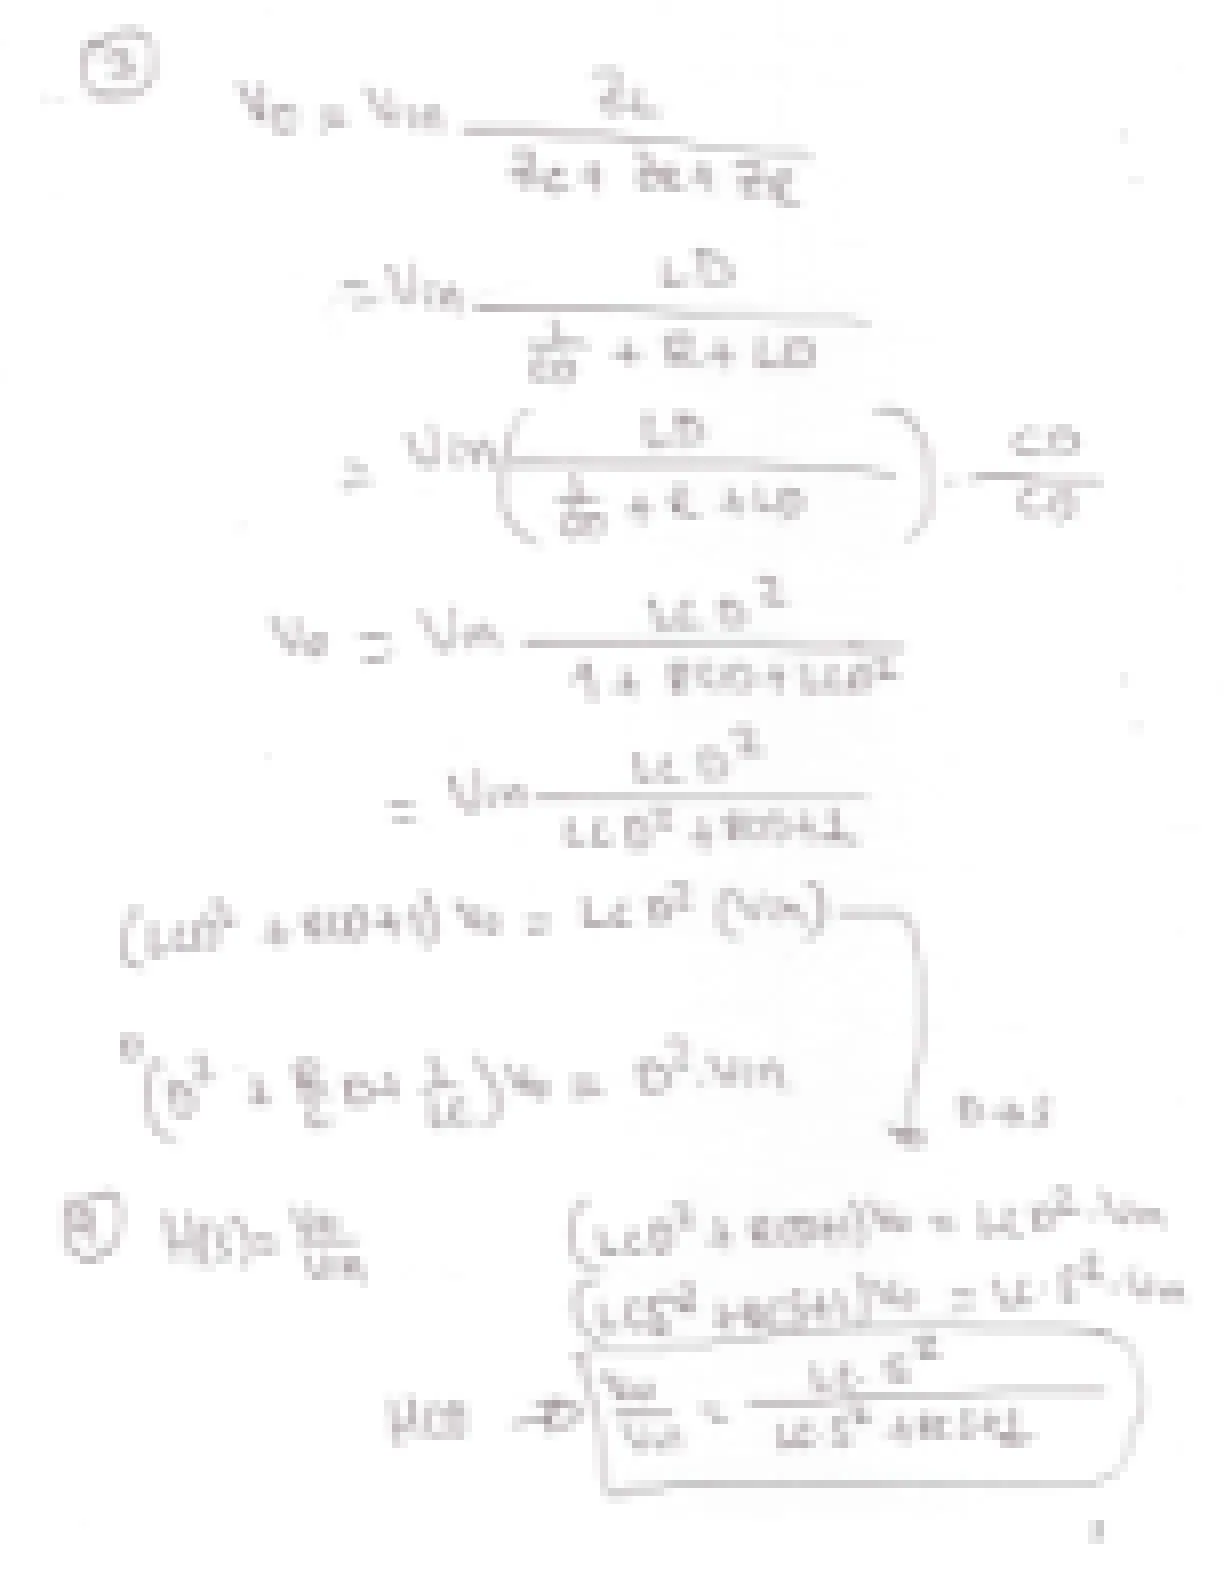 3
V0 = Vin ZL / (Zc + ZR + ZL)
= Vin LD / (1/CD + R + LD)
= Vin ( LD / (1/CD + R + LD) ) · CD/CD
V0 = Vin LCD² / (1 + RCD + LCD²)
= Vin LCD² / (LCD² + RCD + 1)
(LCD² + RCD + 1) V0 = LCD² (Vin)
(D² + R/L D + 1/LC) V0 = D² · Vin
D→S
H(S) = V0/Vin
(LCD² + RCD + 1) V0 = LCD² · Vin
(LCS² + RCS + 1) V0 = LC · S² · Vin
V0/Vin = LC S² / (LC S² + RCS + 1)